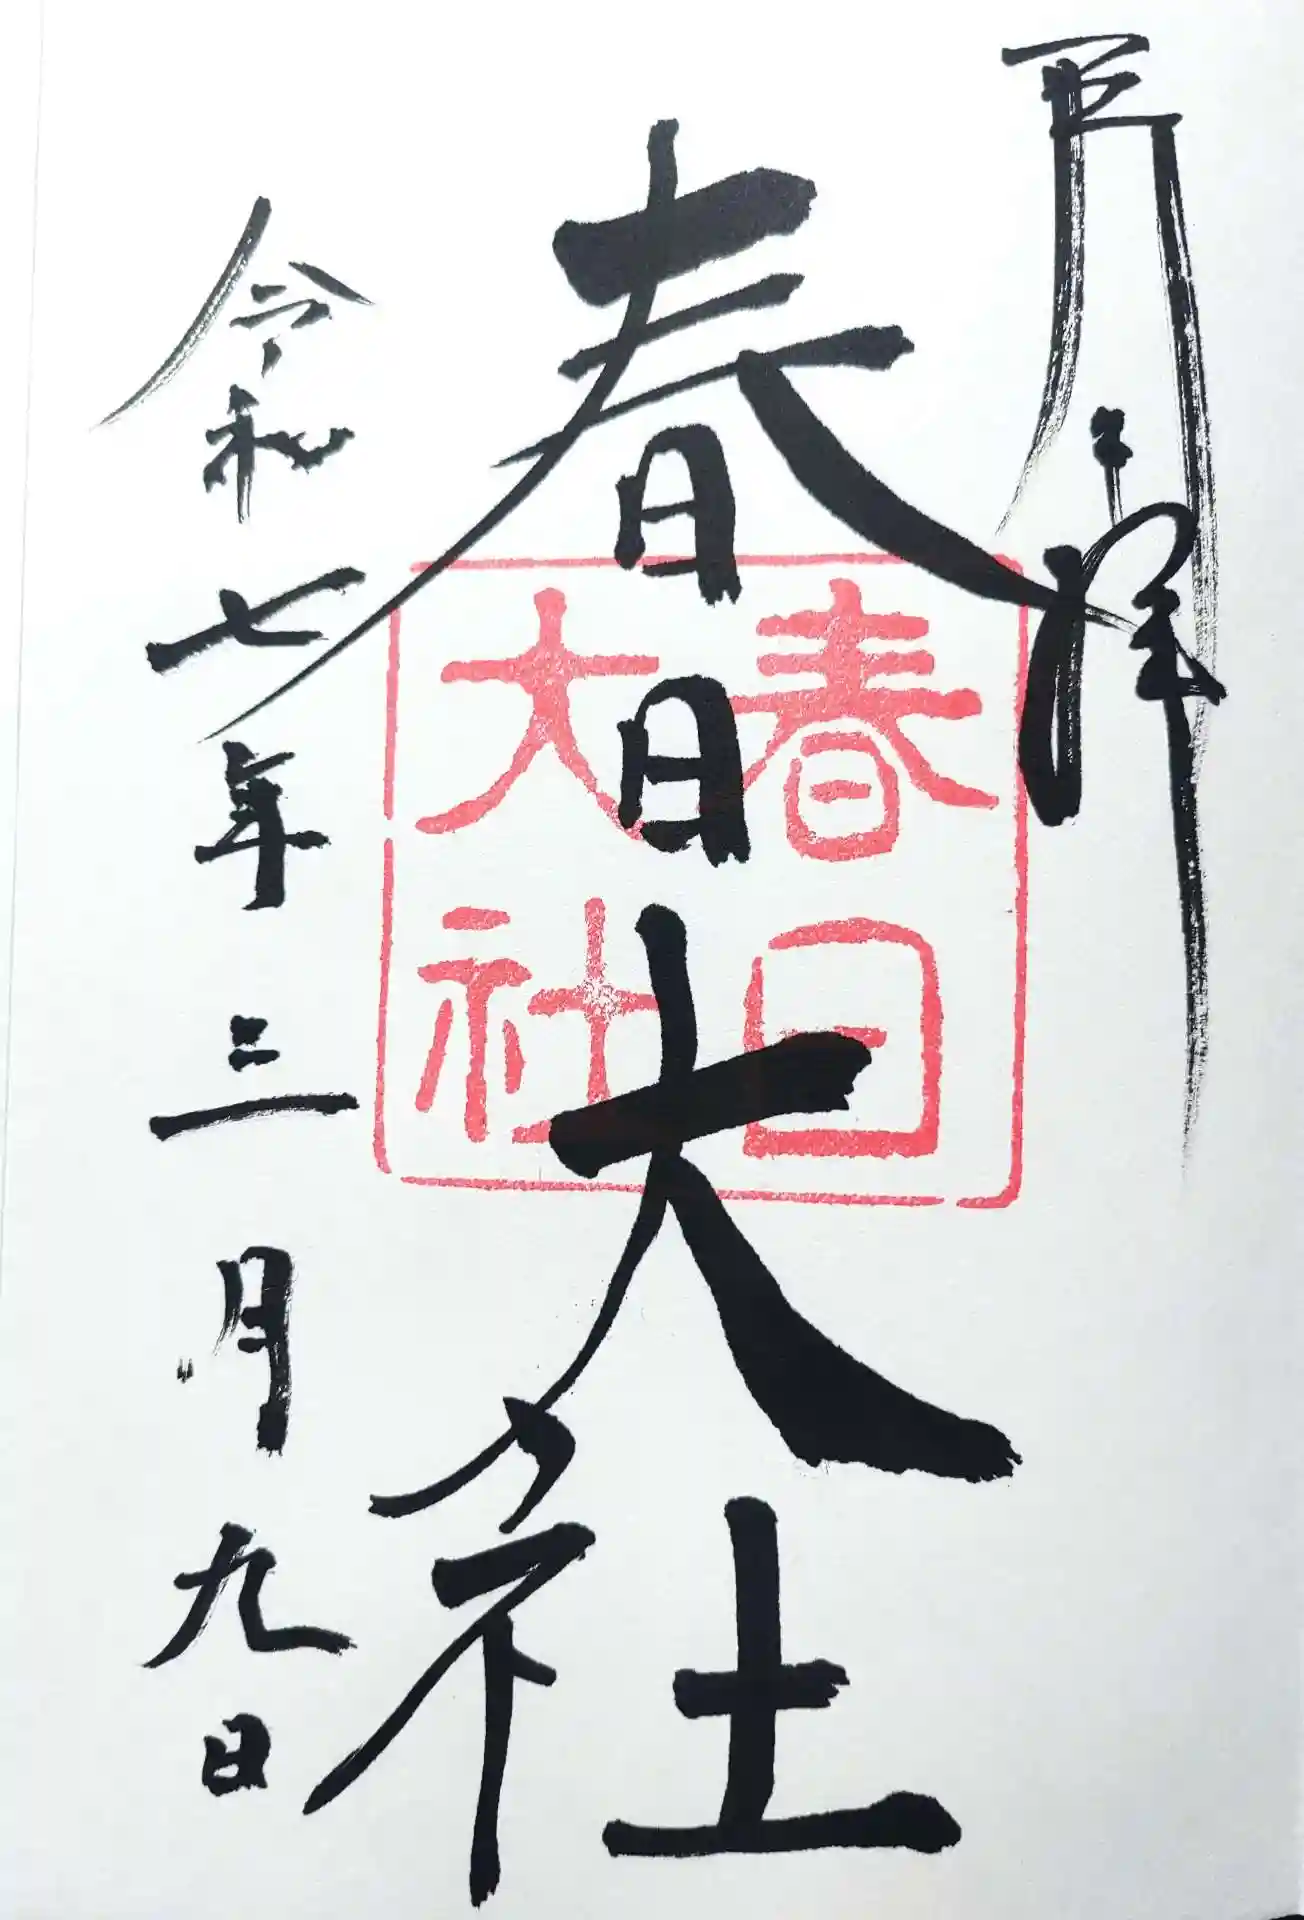 奉拝
春日大社
春日
大社
令和七年三月九日